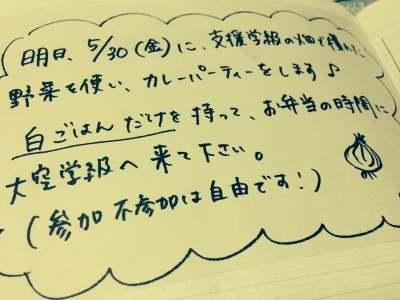 明日、5/30(金)に、支援学級の畑で穫れた
野菜を使い、カレーパーティーをします♪
白ごはんだけを持って、お弁当の時間に
大空学級へ来て下さい。
(参加不参加は自由です!)